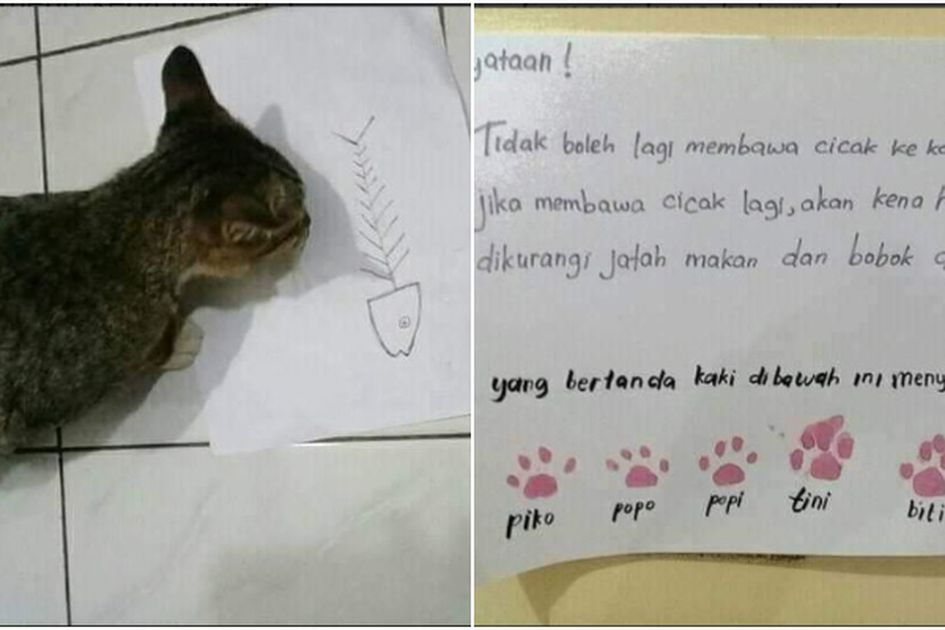 yataan !
Tidak boleh lagi membawa cicak ke ka
Jika membawa cicak lagi, akan kena h
dikurangi jatah makan dan bobok
yang bertanda kaki dibawah ini meny
piko popo popi tini biti